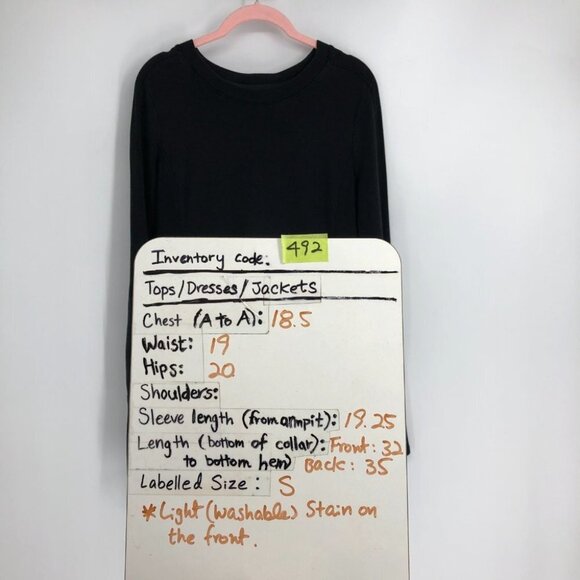 Inventory code: 492
Tops/Dresses/Jackets
Chest (A to A): 18.5
Waist: 19
Hips: 20
Shoulders:
Sleeve length (from armpit): 19.25
Length (bottom of collar): Front: 32
to bottom hem) Back: 35
Labelled Size: S
*Light (washable) Stain on
the front.